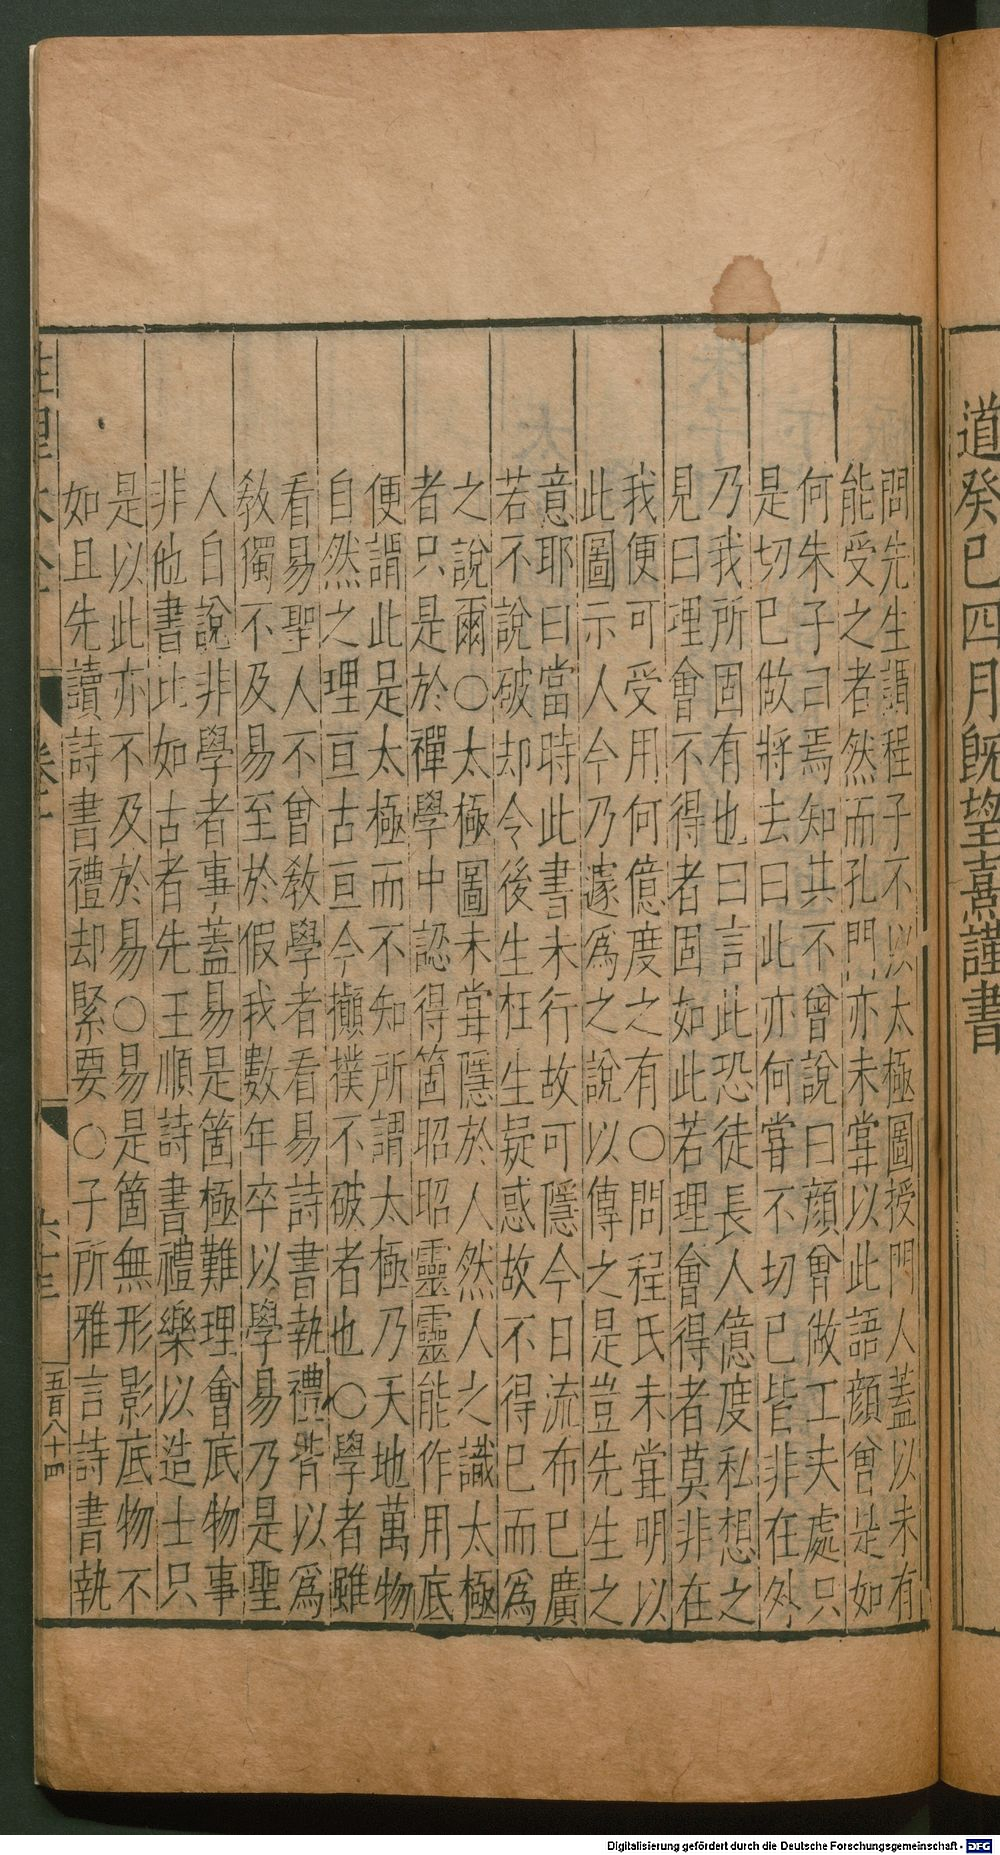 道癸巳四月旣望熹謹書
問先生謂程子不以太極圖授門人蓋以未有
能受之者然而孔門亦未嘗以此語顏曾是如
何朱子曰焉知其不曾說曰顏曾做工夫處只
是切已做將去曰此亦何嘗不切已皆非在外
乃我所固有也曰言此恐徒長人億度私想之
見曰理會不得者固如此若理會得者莫非在
我便可受用何億度之有○問程氏未嘗明以
此圖示人今乃遽爲之說以傳之是豈先生之
意耶曰當時此書未行故可隱今日流布已廣
若不說破却令後生枉生疑惑故不得已而爲
之說爾○太極圖未嘗隱於人然人之識太極
者只是於禪學中認得箇昭昭靈靈能作用底
便謂此是太極而不知所謂太極乃天地萬物
自然之理亘古亘今攧撲不破者也○學者雖
看易聖人不曾敎學者看易詩書執禮皆以爲
敎獨不及易至於假我數年卒以學易乃是聖
人自說非學者事蓋易是箇極難理會底物事
非他書比如古者先王順詩書禮樂以造士只
是以此亦不及於易○易是箇無形影底物不
如且先讀詩書禮却緊要○子所雅言詩書執
性理大全
卷一
六十三
五百八十四
Digitalisierung gefördert durch die Deutsche Forschungsgemeinschaft - DFG